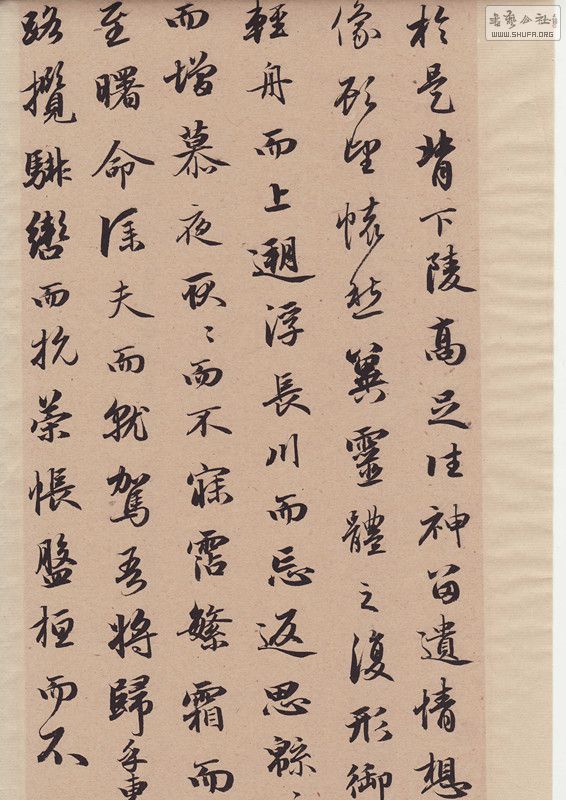 於是背下陵高足往神留遺情想
像顧望懷愁冀靈體之復形御
輕舟而上遡浮長川而忘返思緜〻
而增慕夜耿〻而不寐霑繁霜而
至曙命僕夫而就駕吾將歸乎東
路攬騑轡而抗策悵盤桓而不
WWW.SHUFA.ORG